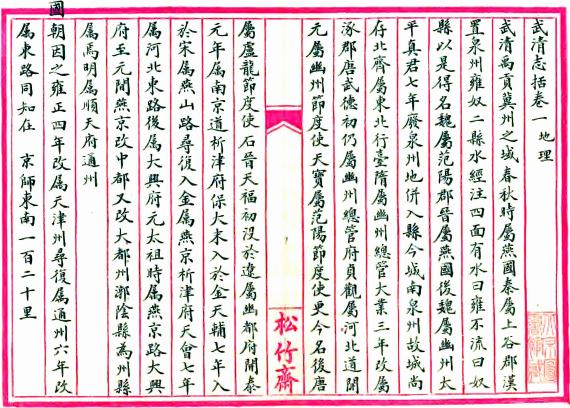 武清志括卷一 地理
武清禹貢冀州之域春秋時屬燕國秦屬上谷郡漢
置泉州雍奴二縣水經注四面有水曰雍不流曰奴
縣以是得名魏屬范陽郡晉屬燕國後魏屬幽州太
平真君七年廢泉州地併入縣今城南泉州故城尚
存北齊屬東北行臺隋屬幽州總管大業三年改屬
涿郡唐武德初仍屬幽州總管府貞觀屬河北道開
元屬幽州節度使天寶屬范陽節度使更今名後唐
松竹齋
屬盧龍節度使石晉天福初没於遼屬幽都府開泰
元年属南京道析津府保大末入於金天輔七年入
於宋属燕山路尋復入金属燕京析津府天會七年
属河北東路後属大興府元太祖時属燕京路大興
府至元間燕京改中都又改大都州漷陰縣為州縣
属焉明属順天府通州
國朝因之雍正四年改属天津州尋復属通州六年改
属東路同知在 京師東南一百二十里